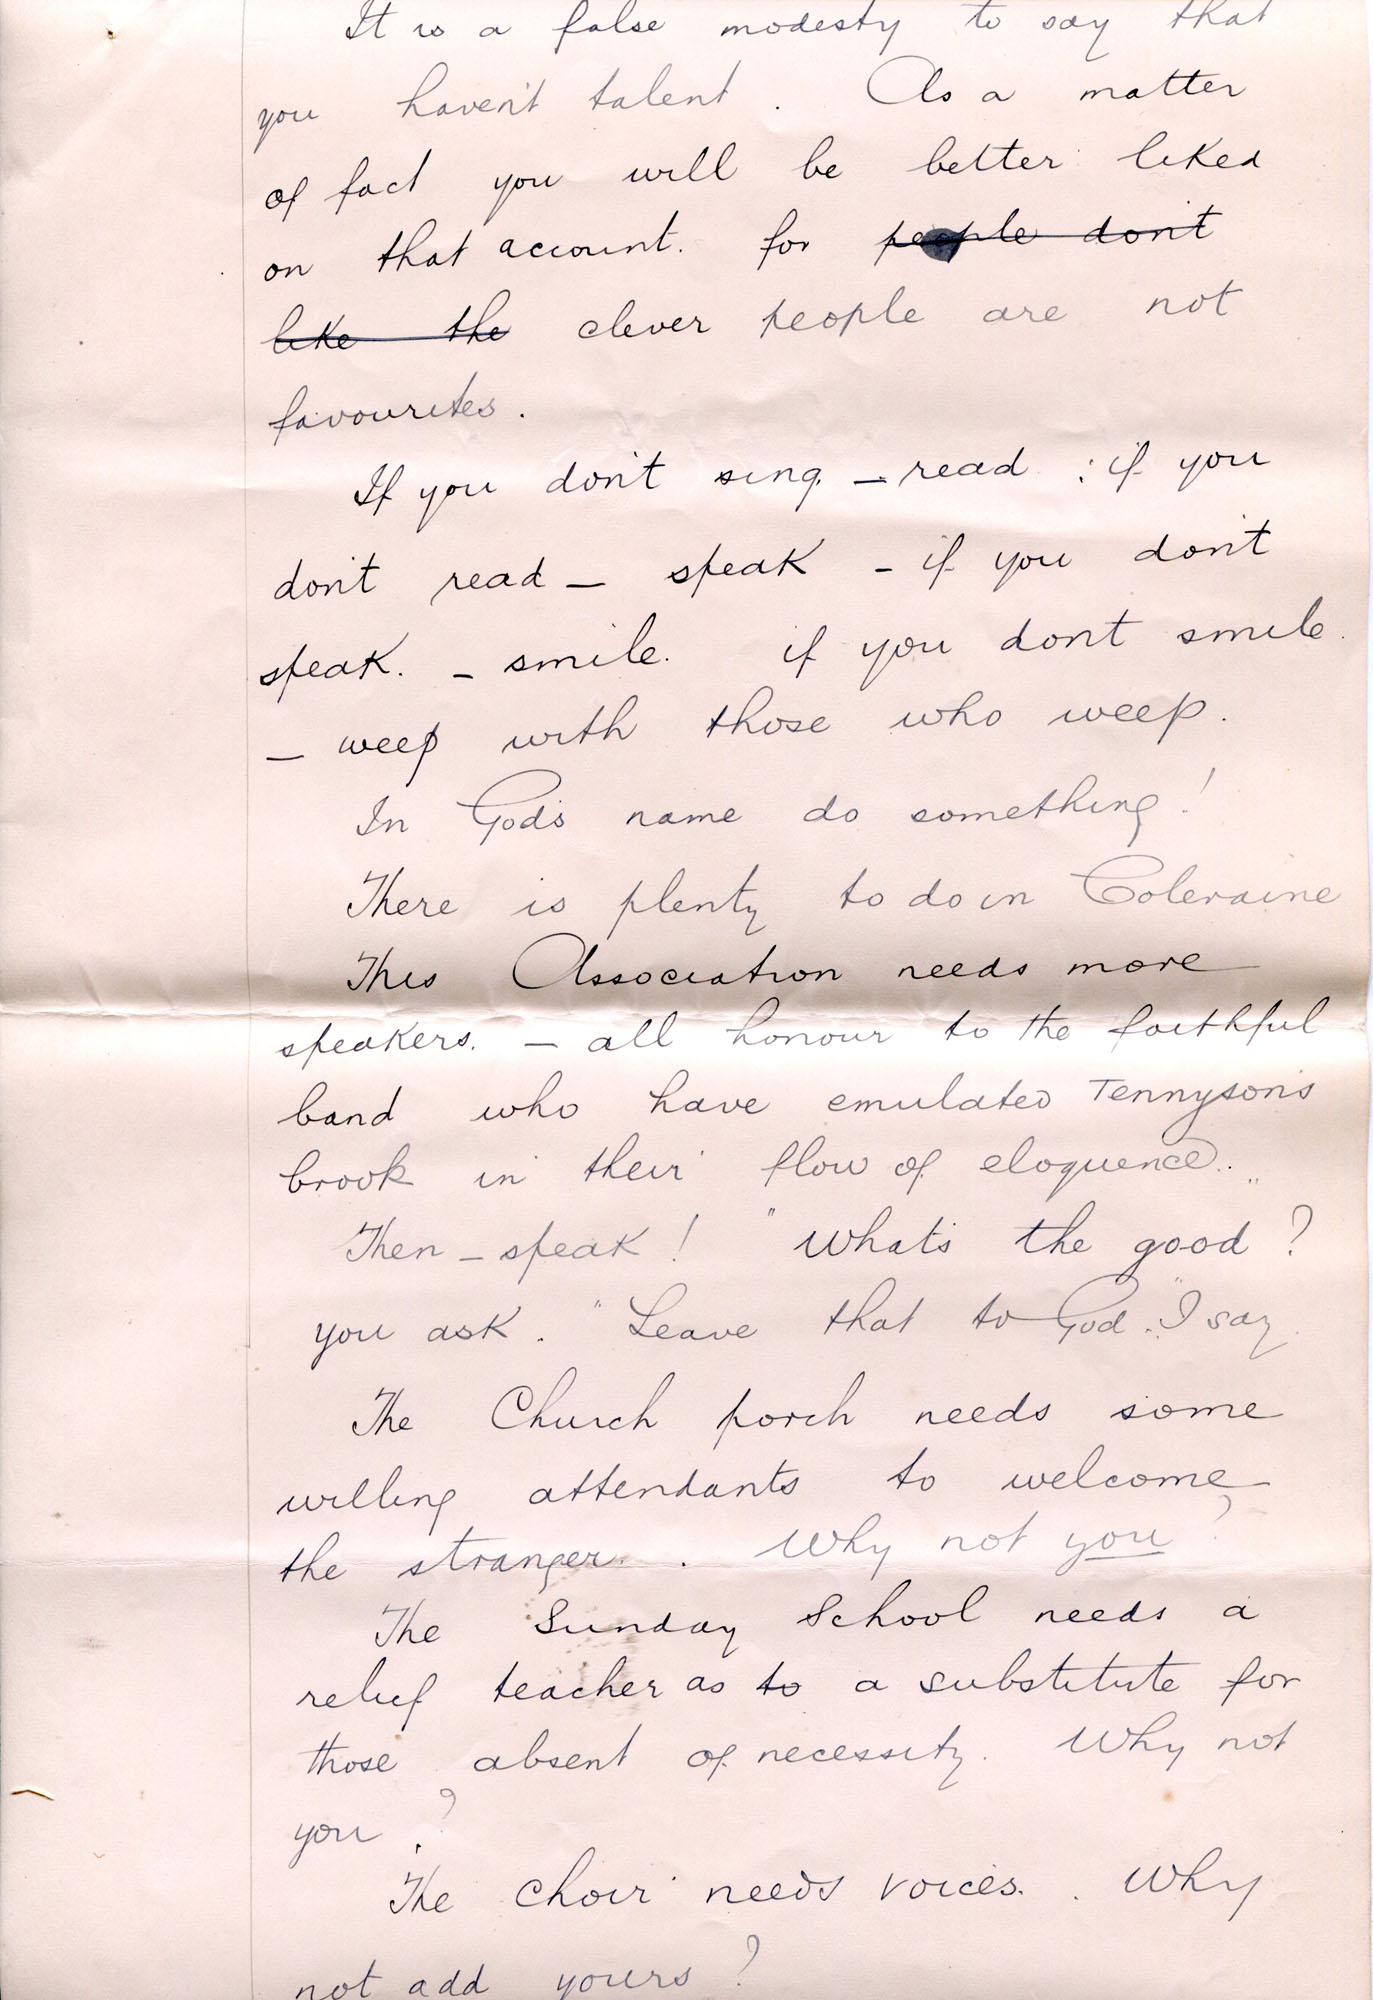 It is a false modesty to say that
you haven't talent. As a matter
of fact you will be better liked
on that account. for people don't
like the clever people are not
favourites.
If you don't sing. – read : if you
don't read – speak – if you don't
speak. – smile. if you dont smile.
– weep with those who weep.
In God's name do something!
There is plenty to do in Coleraine
This Association needs more
speakers. – all honour to the faithful
band who have emulated Tennyson's
brook in their flow of eloquence..
Then – speak! "What's the good?"
you ask. "Leave that to God." I say
The Church porch needs some
willing attendants to welcome
the stranger. . Why not you?
The Sunday School needs a
relief teacher as to a substitute for
those absent of necessity. Why not
you?
The Choir needs voices. . Why
not add yours?